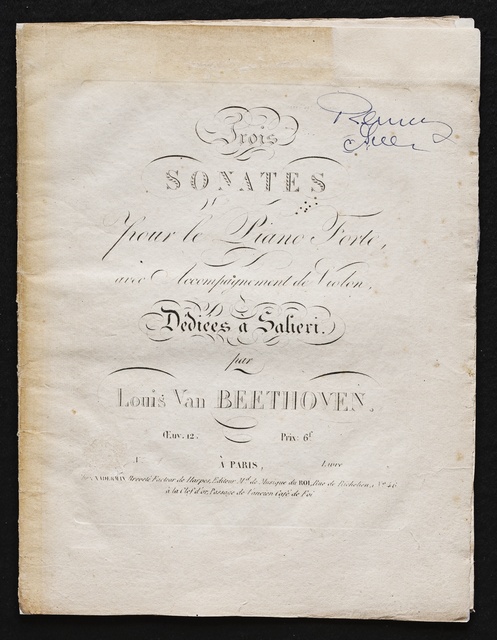 Trois
SONATES
pour le Piano Forte,
avec Accompagnement de Violon,
Dédiées à Salieri.
par
Louis Van BEETHOVEN.
Œuv. 12. Prix 6f
À PARIS,
NADERMAN Breveté Facteur de Harpes, Editeur Md. de Musique du ROI, Rue de Richelieu, No. 46
à la Clef d'or, Passage de l'ancien Café de Foi